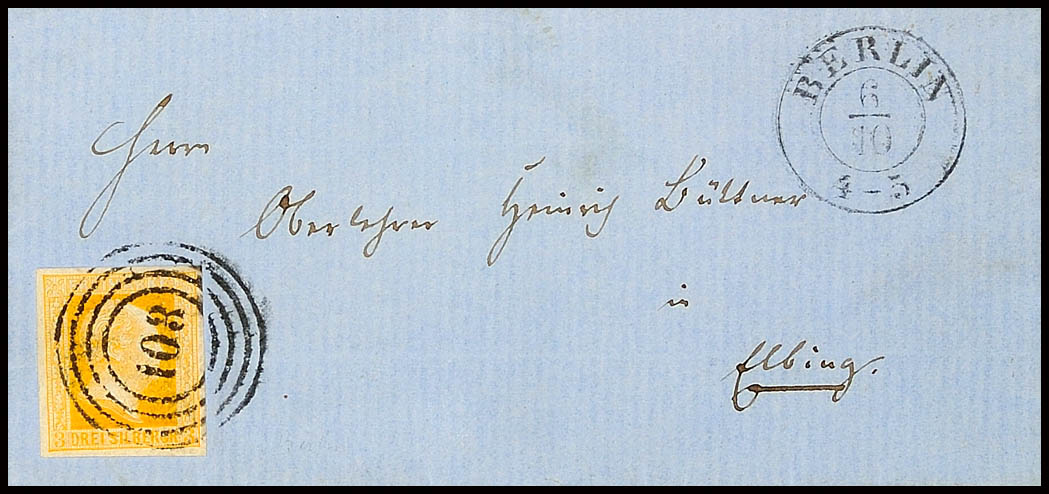 BERLIN
6
10
4-5
Herrn
Oberlehrer Heinrich Büttner
in
Elbing.
103
3 DREI SILBERGR. 3